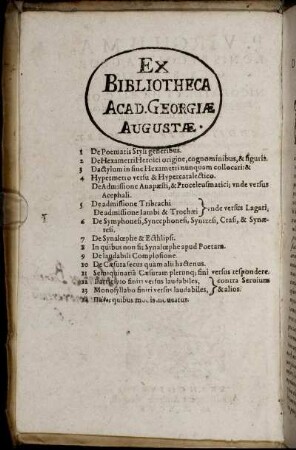 EX
BIBLIOTHECA
ACAD. GEORGIÆ
AUGUSTÆ.
1 De Poematis Styli generibus.
2 De Hexametri Heroici origine, cognominibus, & figuris.
3 Dactylum in fine Hexametri nunquam collocari: &
4 Hypermetro versu & Hypercatalectico.
De Admissione Anapæsti, & Proceleusmatici; vnde versus
Acephali.
5 De admissione Tribrachi
De admissione Iambi & Trochæi } vnde versus Lagari,
6 De Symphonesi, Syncephonesi, Synizesi, Crasi, & Synæ-
resi.
7 De Synalœphe & Ecthlipsi.
8 In quibus non fit Synalœphe apud Poetam.
9 De laudabili Complosione.
10 De Cæsura secus quam alii hactenus.
11 Semiquinariâ Cæsuram plerunq; fini versus respondere.
12 finiti versus laudabiles, } contra Seruium
13 Monosyllabo finiti versus laudabiles, } & alios.
14 quibus